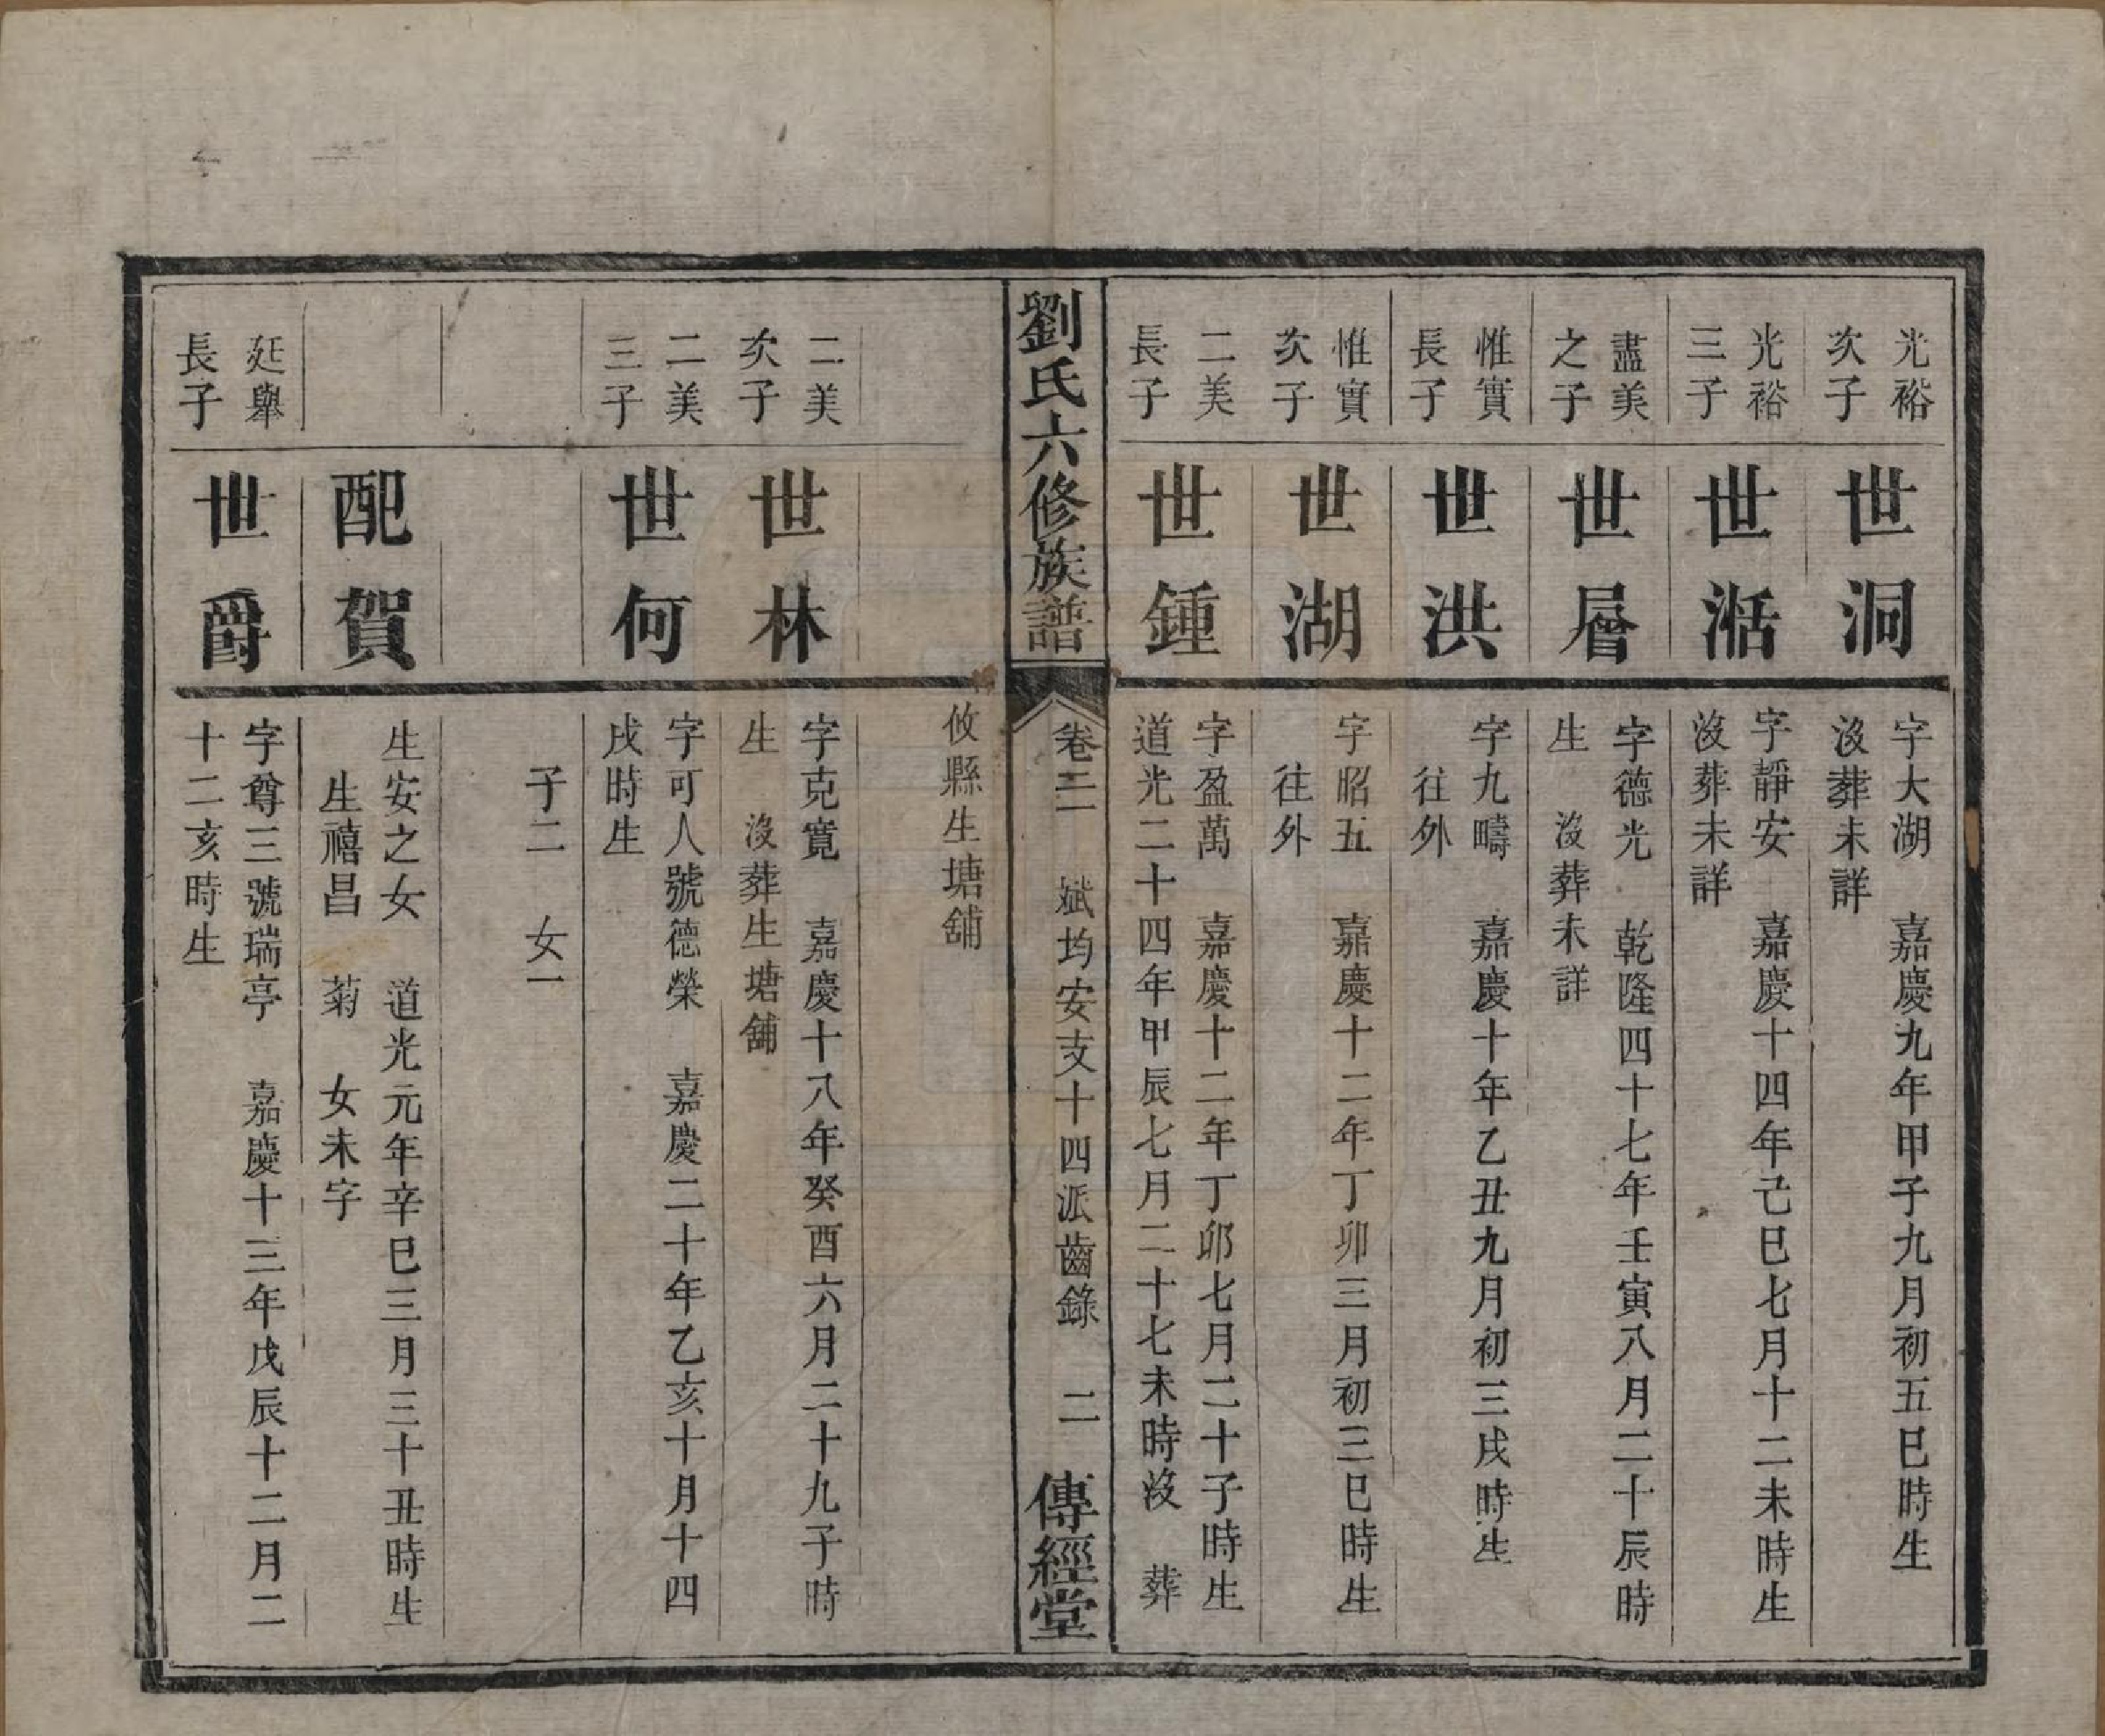 光裕
次子
世洞
字大湖　嘉慶九年甲子九月初五巳時生
沒葬未詳
光裕
三子
世湉
字靜安　嘉慶十四年己巳七月十二未時生
沒葬未詳
盡美
之子
世層
字德光　乾隆四十七年壬寅八月二十辰時
生　沒葬未詳
惟實
長子
世洪
字九疇　嘉慶十年乙丑九月初三戌時生
往外
惟實
次子
世湖
字昭五　嘉慶十二年丁卯三月初三巳時生
往外
二美
長子
世鍾
字盈萬　嘉慶十二年丁卯七月二十子時生
道光二十四年甲辰七月二十七未時沒　葬
劉氏六修族譜
卷二　斌均安支十四派齒錄　二
傳經堂
攸縣生塘舖
二美
次子
世林
字克寬　嘉慶十八年癸酉六月二十九子時
生　沒葬生塘舖
二美
三子
世何
字可人號德榮　嘉慶二十年乙亥十月十四
戌時生
子二　女一
配賀
生安之女　道光元年辛巳三月三十丑時生
生禧昌　菊　女未字
廷舉
長子
世爵
字尊三號瑞亭　嘉慶十三年戊辰十二月二
十二亥時生